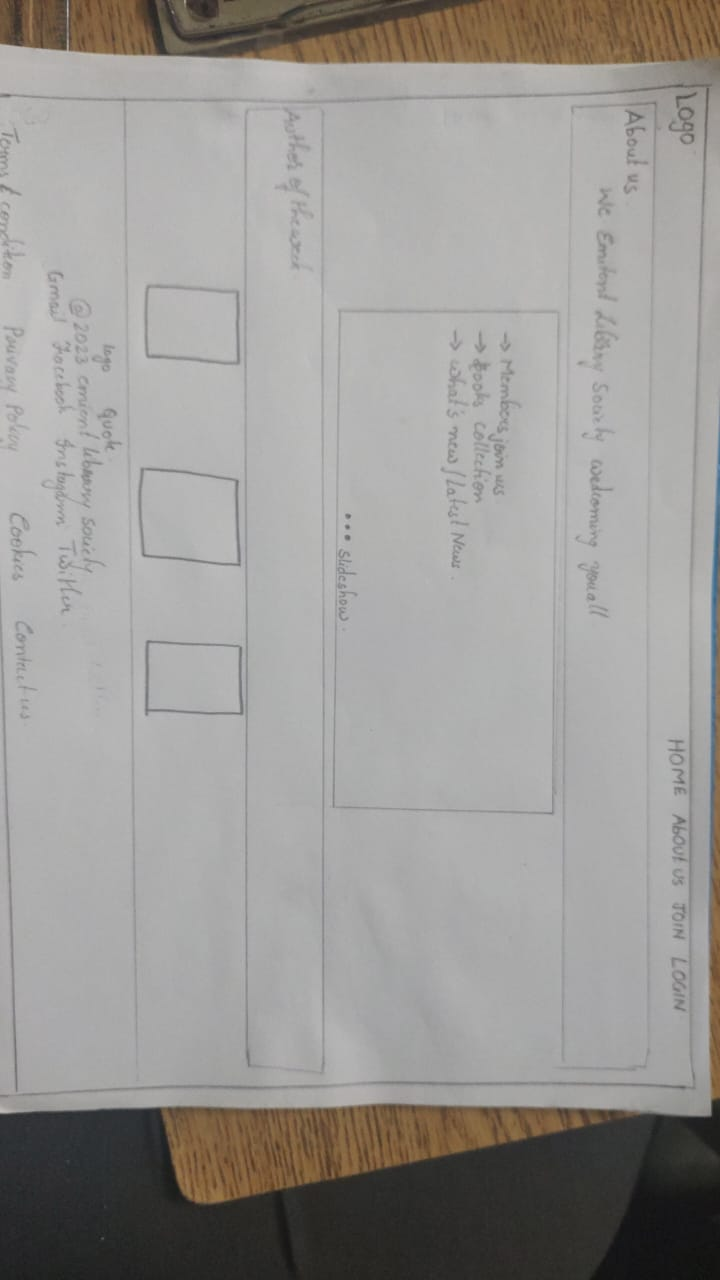 Logo
HOME About us JOIN LOGIN
About us.
We Emitent Library Society welcoming you all
→ Members join us
→ Books collection
→ what's new/Latest News.
... slideshow.
Author of the week
logo quote.
@2023 emient library society
Gmail Facebook Instagram Twitter.
Terms & condition Privacy Policy Cookies Contact us